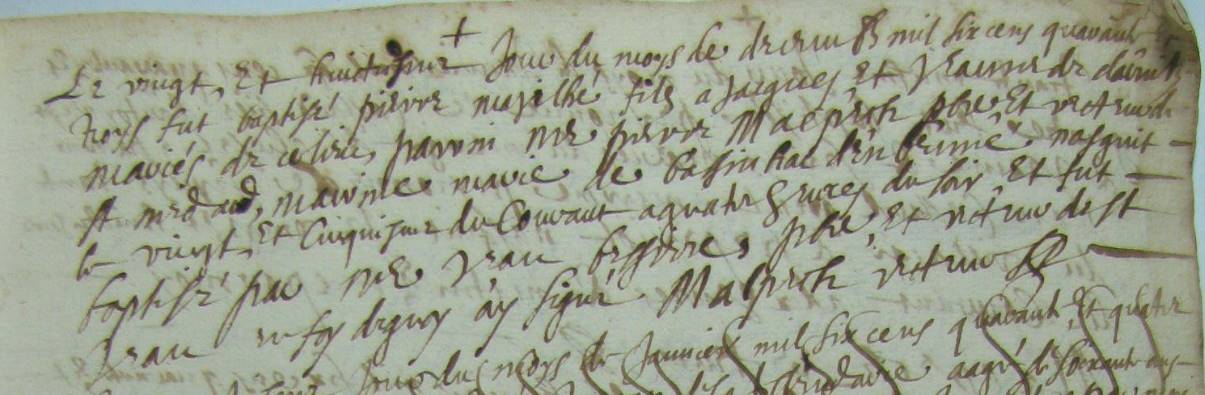 Le vingt, Et huictiesme Jour du moys de decembre mil six cens quarante
troys fut baptisé pierre fils a Jacques, Et Jeanne de
mariés de ce lieu, parrin mre pierre Malpuch pbre, Et recteur de
St medard, marrine marie de nasquit
le vingt, Et Cinquiesme du Courant a quatre heures du soir, Et fut
baptisé par mre Jean pbre, Et recteur de St
Jean en foy dequoy ay signé Malpuch recteur
Jour du moys de Janvier mil six cens quarante, Et quatre
aagé de soixante ans